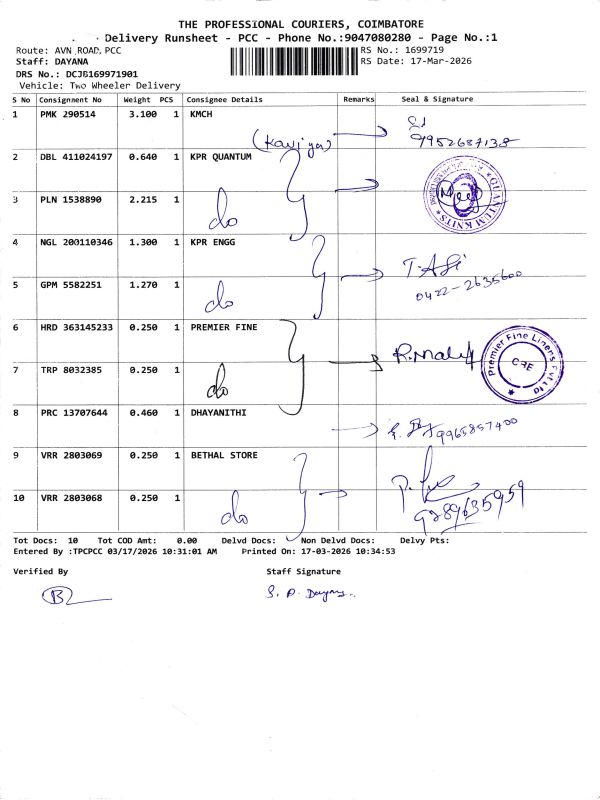 THE PROFESSIONAL COURIERS, COIMBATORE
Delivery Runsheet - PCC - Phone No.:9047080280 - Page No.:1
Route: AVN ROAD, PCC RS No.: 1699719
Staff: DAYANA RS Date: 17-Mar-2026
DRS No.: DCJ6169971901
Vehicle: Two Wheeler Delivery
S No Consignment No Weight PCS Consignee Details Remarks Seal & Signature
1 PMK 290514 3.100 1 KMCH
(Kaviya) 9952687138
2 DBL 411024197 0.640 1 KPR QUANTUM
QUANTUM KNITS
3 PLN 1538890 2.215 1 do
4 NGL 200110346 1.300 1 KPR ENGG
5 GPM 5582251 1.270 1 do 0422-2635600
6 HRD 363145233 0.250 1 PREMIER FINE
Premier Fine Linens Pvt Ltd
CBE
7 TRP 8032385 0.250 1 do
8 PRC 13707644 0.460 1 DHAYANITHI
9965857400
9 VRR 2803069 0.250 1 BETHAL STORE
10 VRR 2803068 0.250 1 do 9289635959
Tot Docs: 10 Tot COD Amt: 0.00 Delvd Docs: Non Delvd Docs: Delvy Pts:
Entered By :TPCPCC 03/17/2026 10:31:01 AM Printed On: 17-03-2026 10:34:53
Verified By Staff Signature